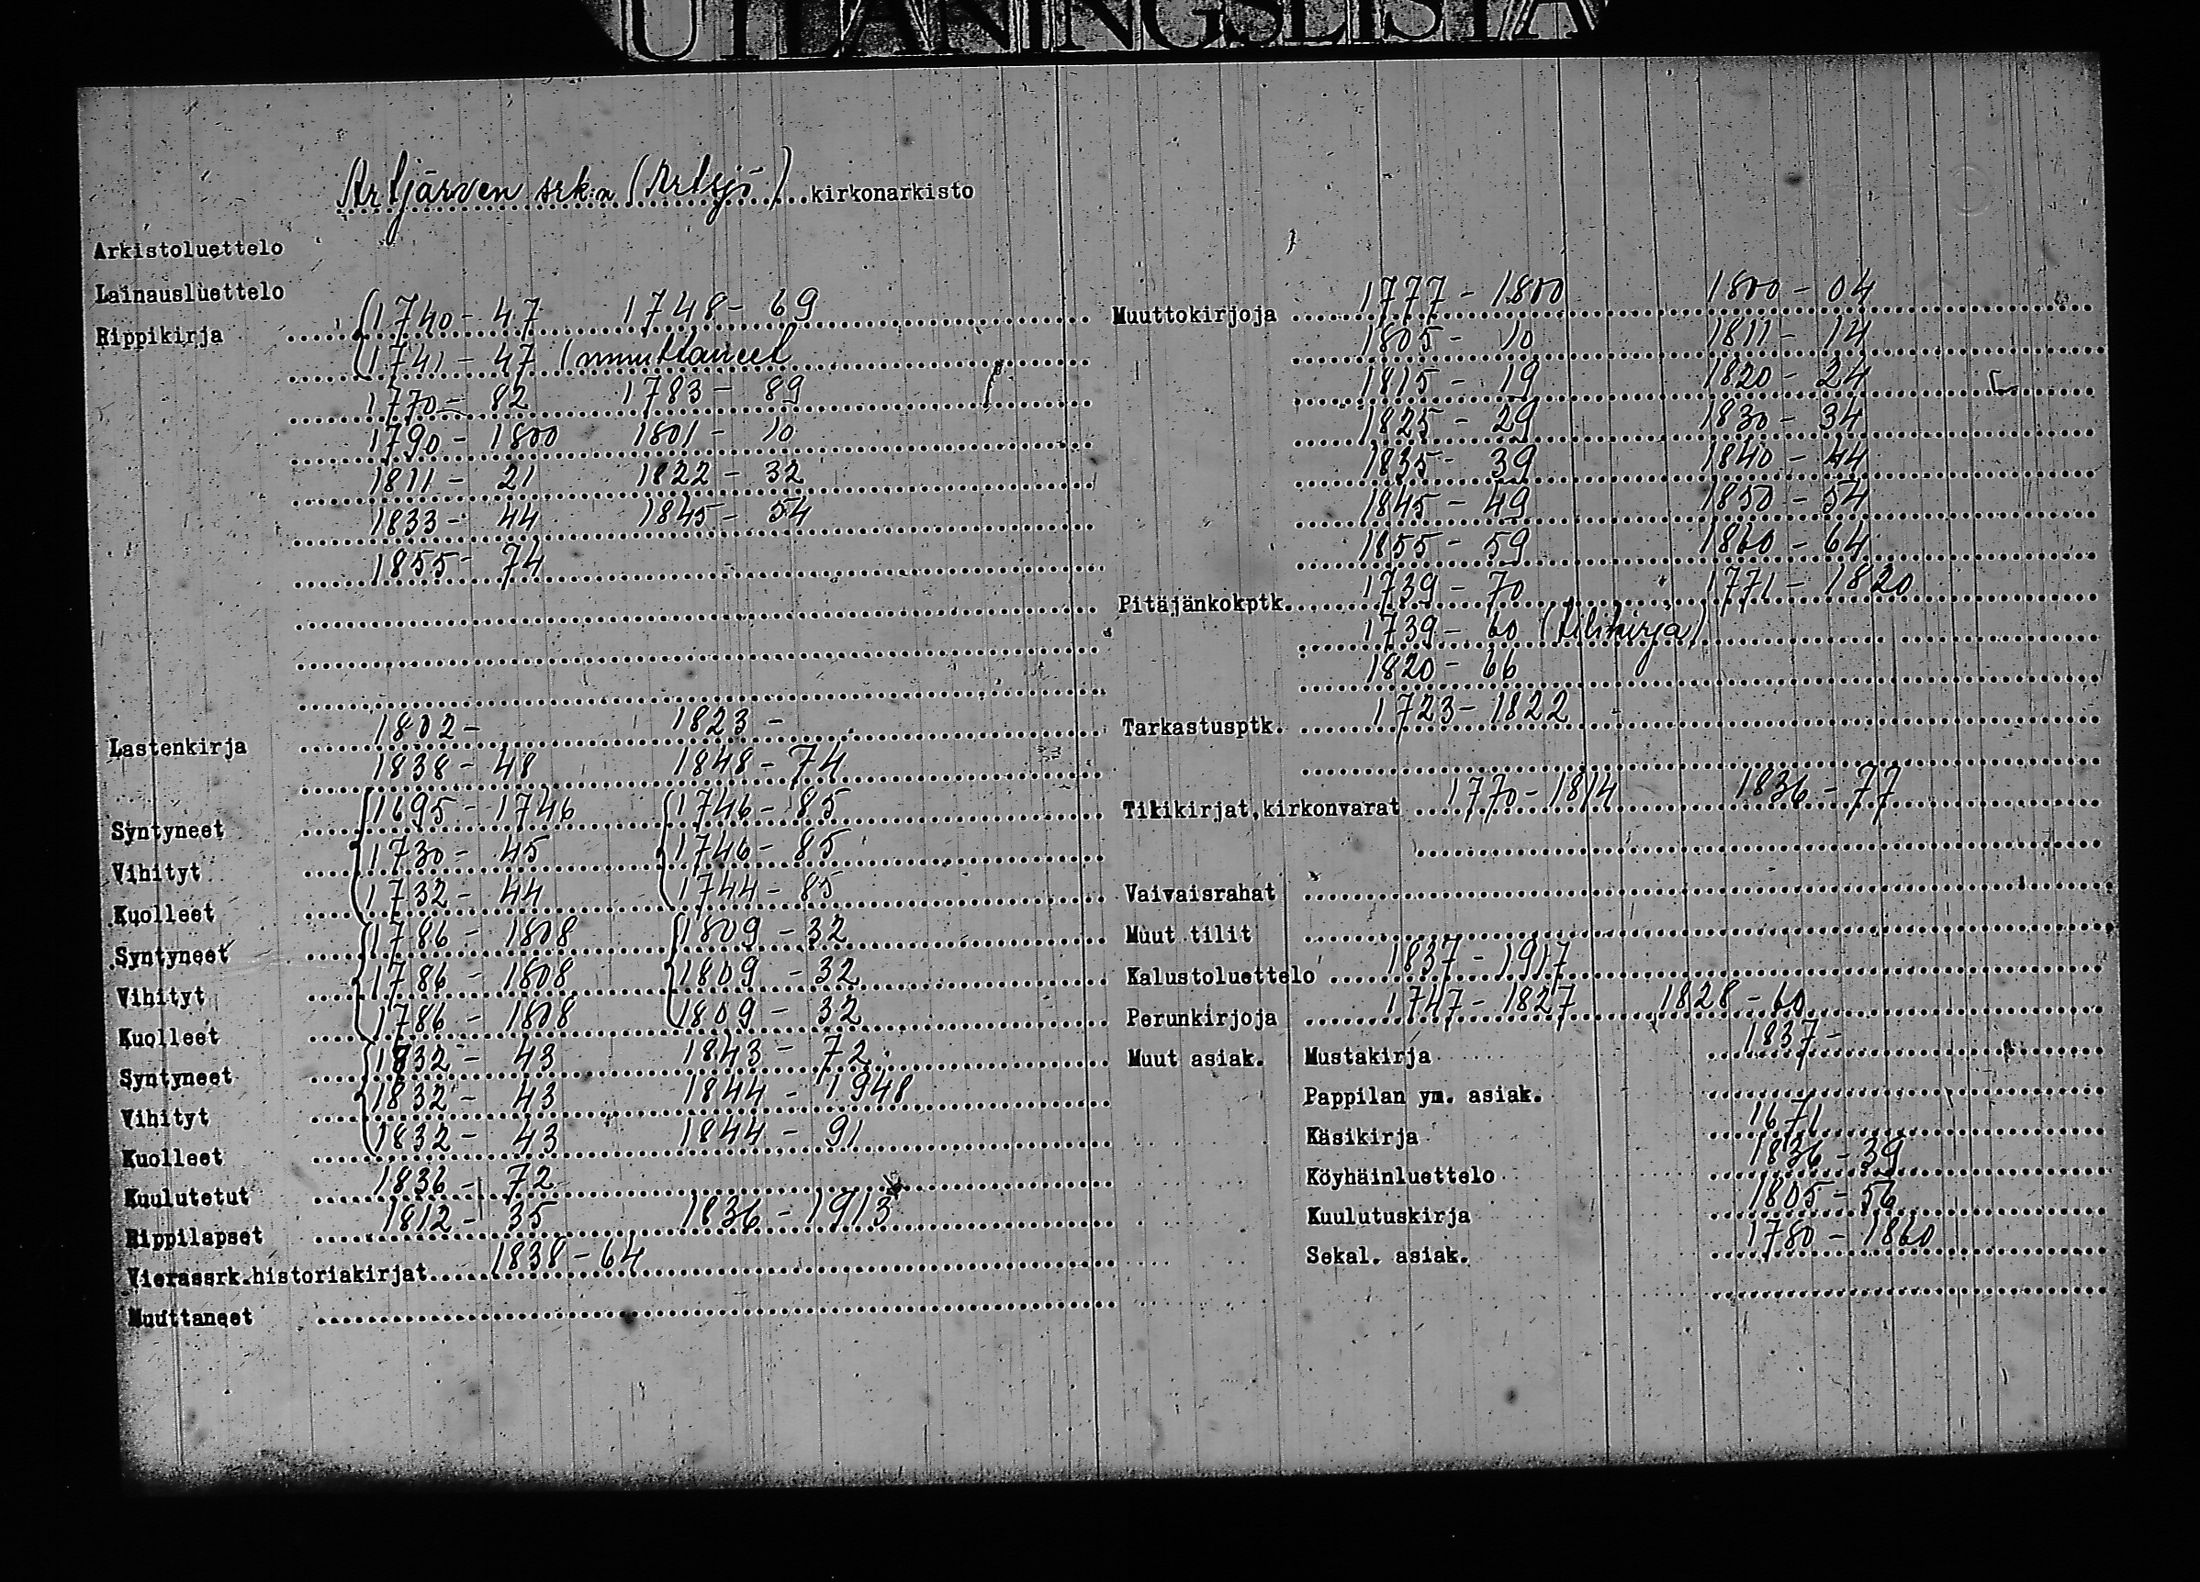 UTLÅNINGSLISTA
Artjärven srk:n (Artsjö) kirkonarkisto
Arkistoluettelo
Lainausluettelo
Rippikirja 1740-47 1748-69
1741-47 (muuttaneet
1770-82 1783-89
1790-1800 1801-10
1811-21 1822-32
1833-44 1845-54
1855-74
Lastenkirja 1802- 1823-
1838-48 1848-74
Syntyneet 1695-1746 1746-85
Vihityt 1730-45 1746-85
Kuolleet 1732-44 1744-85
Syntyneet 1786-1808 1809-32
Vihityt 1786-1808 1809-32
Kuolleet 1786-1808 1809-32
Syntyneet 1832-43 1843-72
Vihityt 1832-43 1844-1948
Kuolleet 1832-43 1844-91
Kuulutetut 1836-72
Rippilapset 1812-35 1836-1913
Vierassrk.historiakirjat 1838-64
Muuttaneet
Muuttokirjoja 1777-1800 1800-04
1805-10 1811-14
1815-19 1820-24
1825-29 1830-34
1835-39 1840-44
1845-49 1850-54
1855-59 1860-64
Pitäjänkokptk. 1739-70 1771-1820
1739-60 (tilikirja)
1820-66
Tarkastusptk. 1723-1822
Tilikirjat,kirkonvarat 1770-1814 1836-77
Vaivaisrahat
Muut tilit
Kalustoluettelo 1837-1917
Perunkirjoja 1747-1827 1828-60
Muut asiak. Mustakirja 1837-
Pappilan ym. asiak.
Käsikirja 1671
Köyhäinluettelo 1836-39
Kuulutuskirja 1805-56
Sekal. asiak. 1780-1860